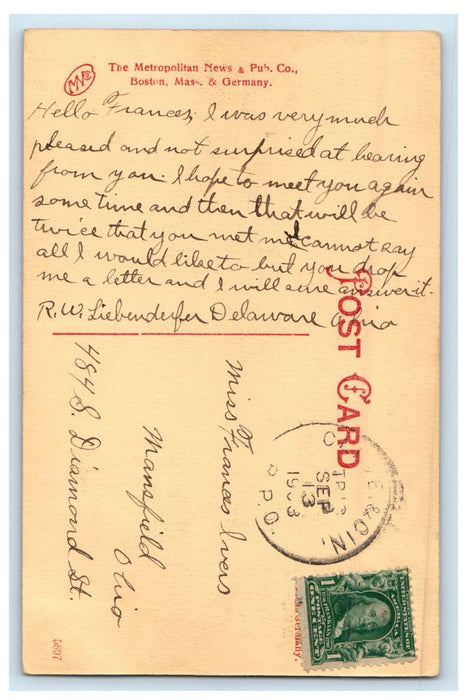 The Metropolitan News & Pub. Co.,
Boston, Mass. & Germany.
Hello Frances; I was very much
pleased and not surprised at hearing
from you. I hope to meet you again
some time and then that will be
twice that you met me I cannot say
all I would like to but you drop
me a letter and I will sure answer it.
R. W. Liebenderfer Delaware Ohio
POST CARD
Miss Frances Ivers
Mansfield
Ohio
484 S. Diamond St.
& CIN.
SEP
13
R.P.O.
5897
Germany.
1